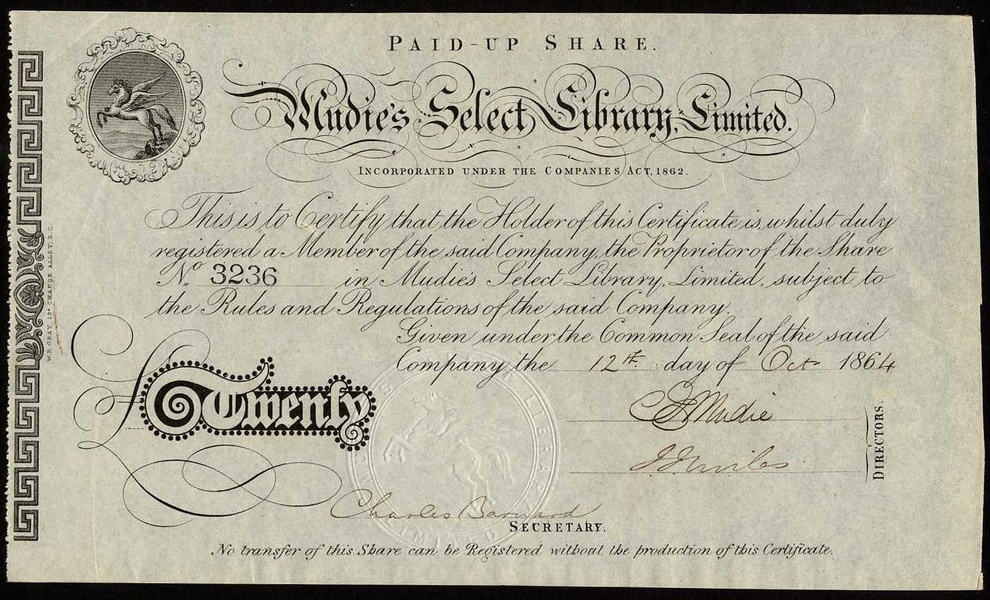 PAID-UP SHARE.
Mudie's Select Library, Limited.
INCORPORATED UNDER THE COMPANIES ACT, 1862.
This is to Certify that the Holder of this Certificate is, whilst duly
registered a Member of the said Company, the Proprietor of the Share
No. 3236 in Mudie's Select Library, Limited, subject to
the Rules and Regulations of the said Company.
Given under the Common Seal of the said
Company, the 12th day of Oct 1864
£Twenty
C E Mudie
DIRECTORS.
Charles Barnard
SECRETARY.
No transfer of this Share can be Registered without the production of this Certificate.